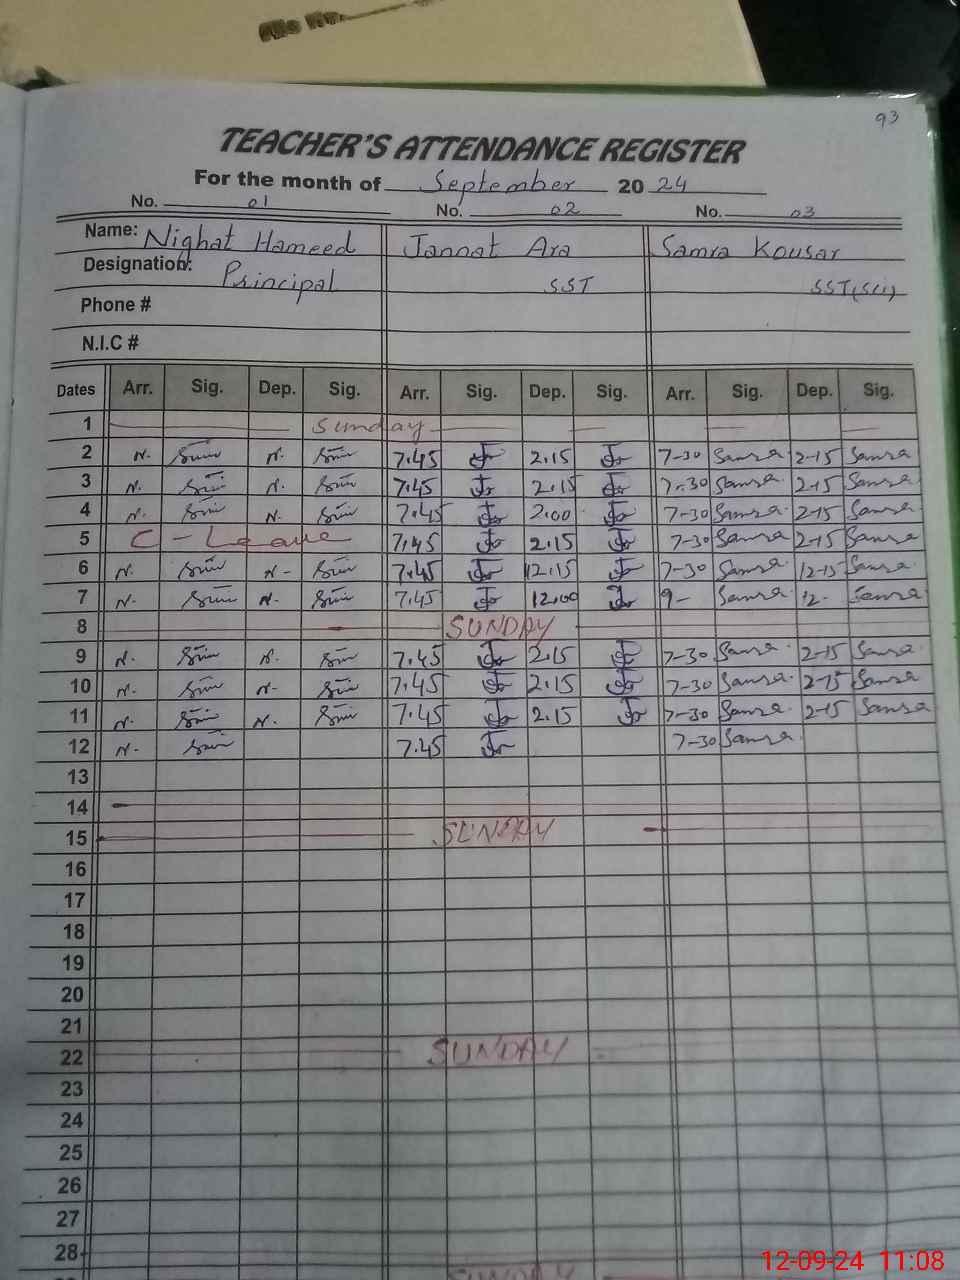 93
TEACHER'S ATTENDANCE REGISTER
For the month of September 2024
No. 01 No. 02 No. 03
Name: Nighat Hameed Jannat Ara Samra Kousar
Designation: Principal SST SST(Sci)
Phone #
N.I.C #
Dates Arr. Sig. Dep. Sig. Arr. Sig. Dep. Sig. Arr. Sig. Dep. Sig.
1 Sunday
2 N. N. 7.45 2.15 7-30 Samra 2-15 Samra
3 N. N. 7.45 2.15 7-30 Samra 2-15 Samra
4 N. N. 7.45 2.00 7-30 Samra 2-15 Samra
5 C-Leave 7.45 2.15 7-30 Samra 2-15 Samra
6 N. N- 7.45 12.15 7-30 Samra 12-15 Samra
7 N. N. 7.45 12.00 9- Samra 12- Samra
8 SUNDAY
9 N. N. 7.45 2.15 7-30 Samra 2-15 Samra
10 N. N- 7.45 2.15 7-30 Samra 2-15 Samra
11 N. N. 7.45 2.15 7-30 Samra 2-15 Samra
12 N. 7.45 7-30 Samra
13
14
15 SUNDAY
16
17
18
19
20
21
22 SUNDAY
23
24
25
26
27
28
SUNDAY
12-09-24 11:08